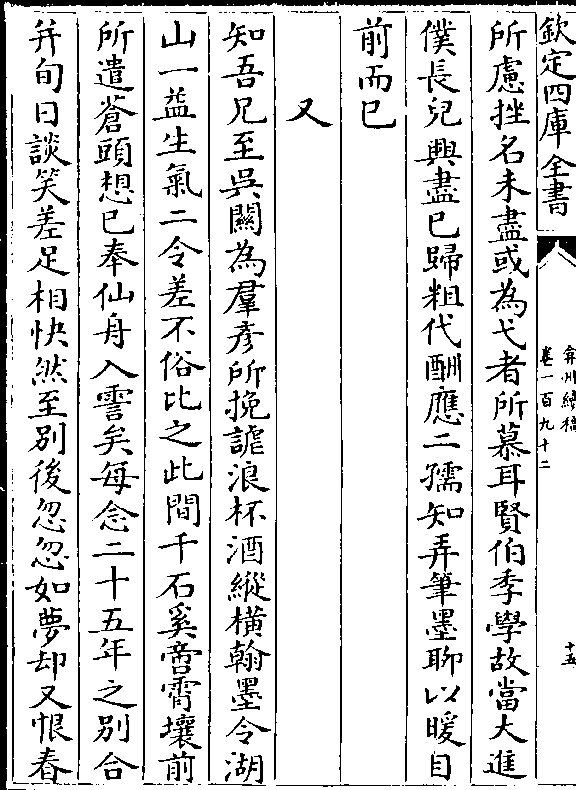 欽定四庫全書
弇州續稿
卷一百九十二
十五
所慮挫名未盡或為弋者所慕耳賢伯季學故當大進
僕長兒興盡已歸粗代酬應二孺知弄筆墨聊以暖目
前而已
又
知吾兄至吳關為羣彦所挽謔浪杯酒縱橫翰墨令湖
山一益生氣二令差不俗比之此間千石奚啻霄壤前
所遣蒼頭想已奉仙舟入霅矣每念二十五年之别合
并旬日談笑差足相快然至别後忽忽如夢却又恨春